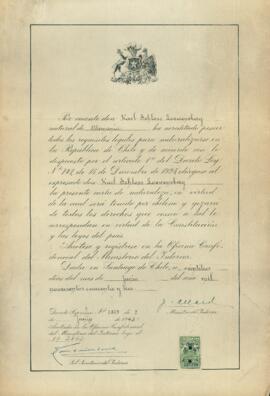 Por cuanto don Karl Schloss
natural de Alemania ha acreditado poseer
todos los requisitos legales para nacionalizarse en
la República de Chile y de acuerdo con lo
dispuesto por el artículo 1º del Decreto Ley
Nº 747 de 15 de Diciembre de 1925 otórgase al
expresado don Karl Schloss
la presente carta de naturaleza, en virtud
de la cual será tenido por chileno y gozará
de todos los derechos que como a tal le
correspondan en virtud de la Constitución
y las leyes del país.
Anótese y regístrese en la Oficina Confi-
dencial del Ministerio del Interior.
Dada en Santiago de Chile, a
días del mes de junio del año mil
novecientos cuarenta y tres
Decreto Supremo Nº de 2
de junio de 1943.
Ministro del Interior
Anotada en la Oficina Confidencial
del Ministerio del Interior bajo el
Nº
Sub-Secretario del Interior